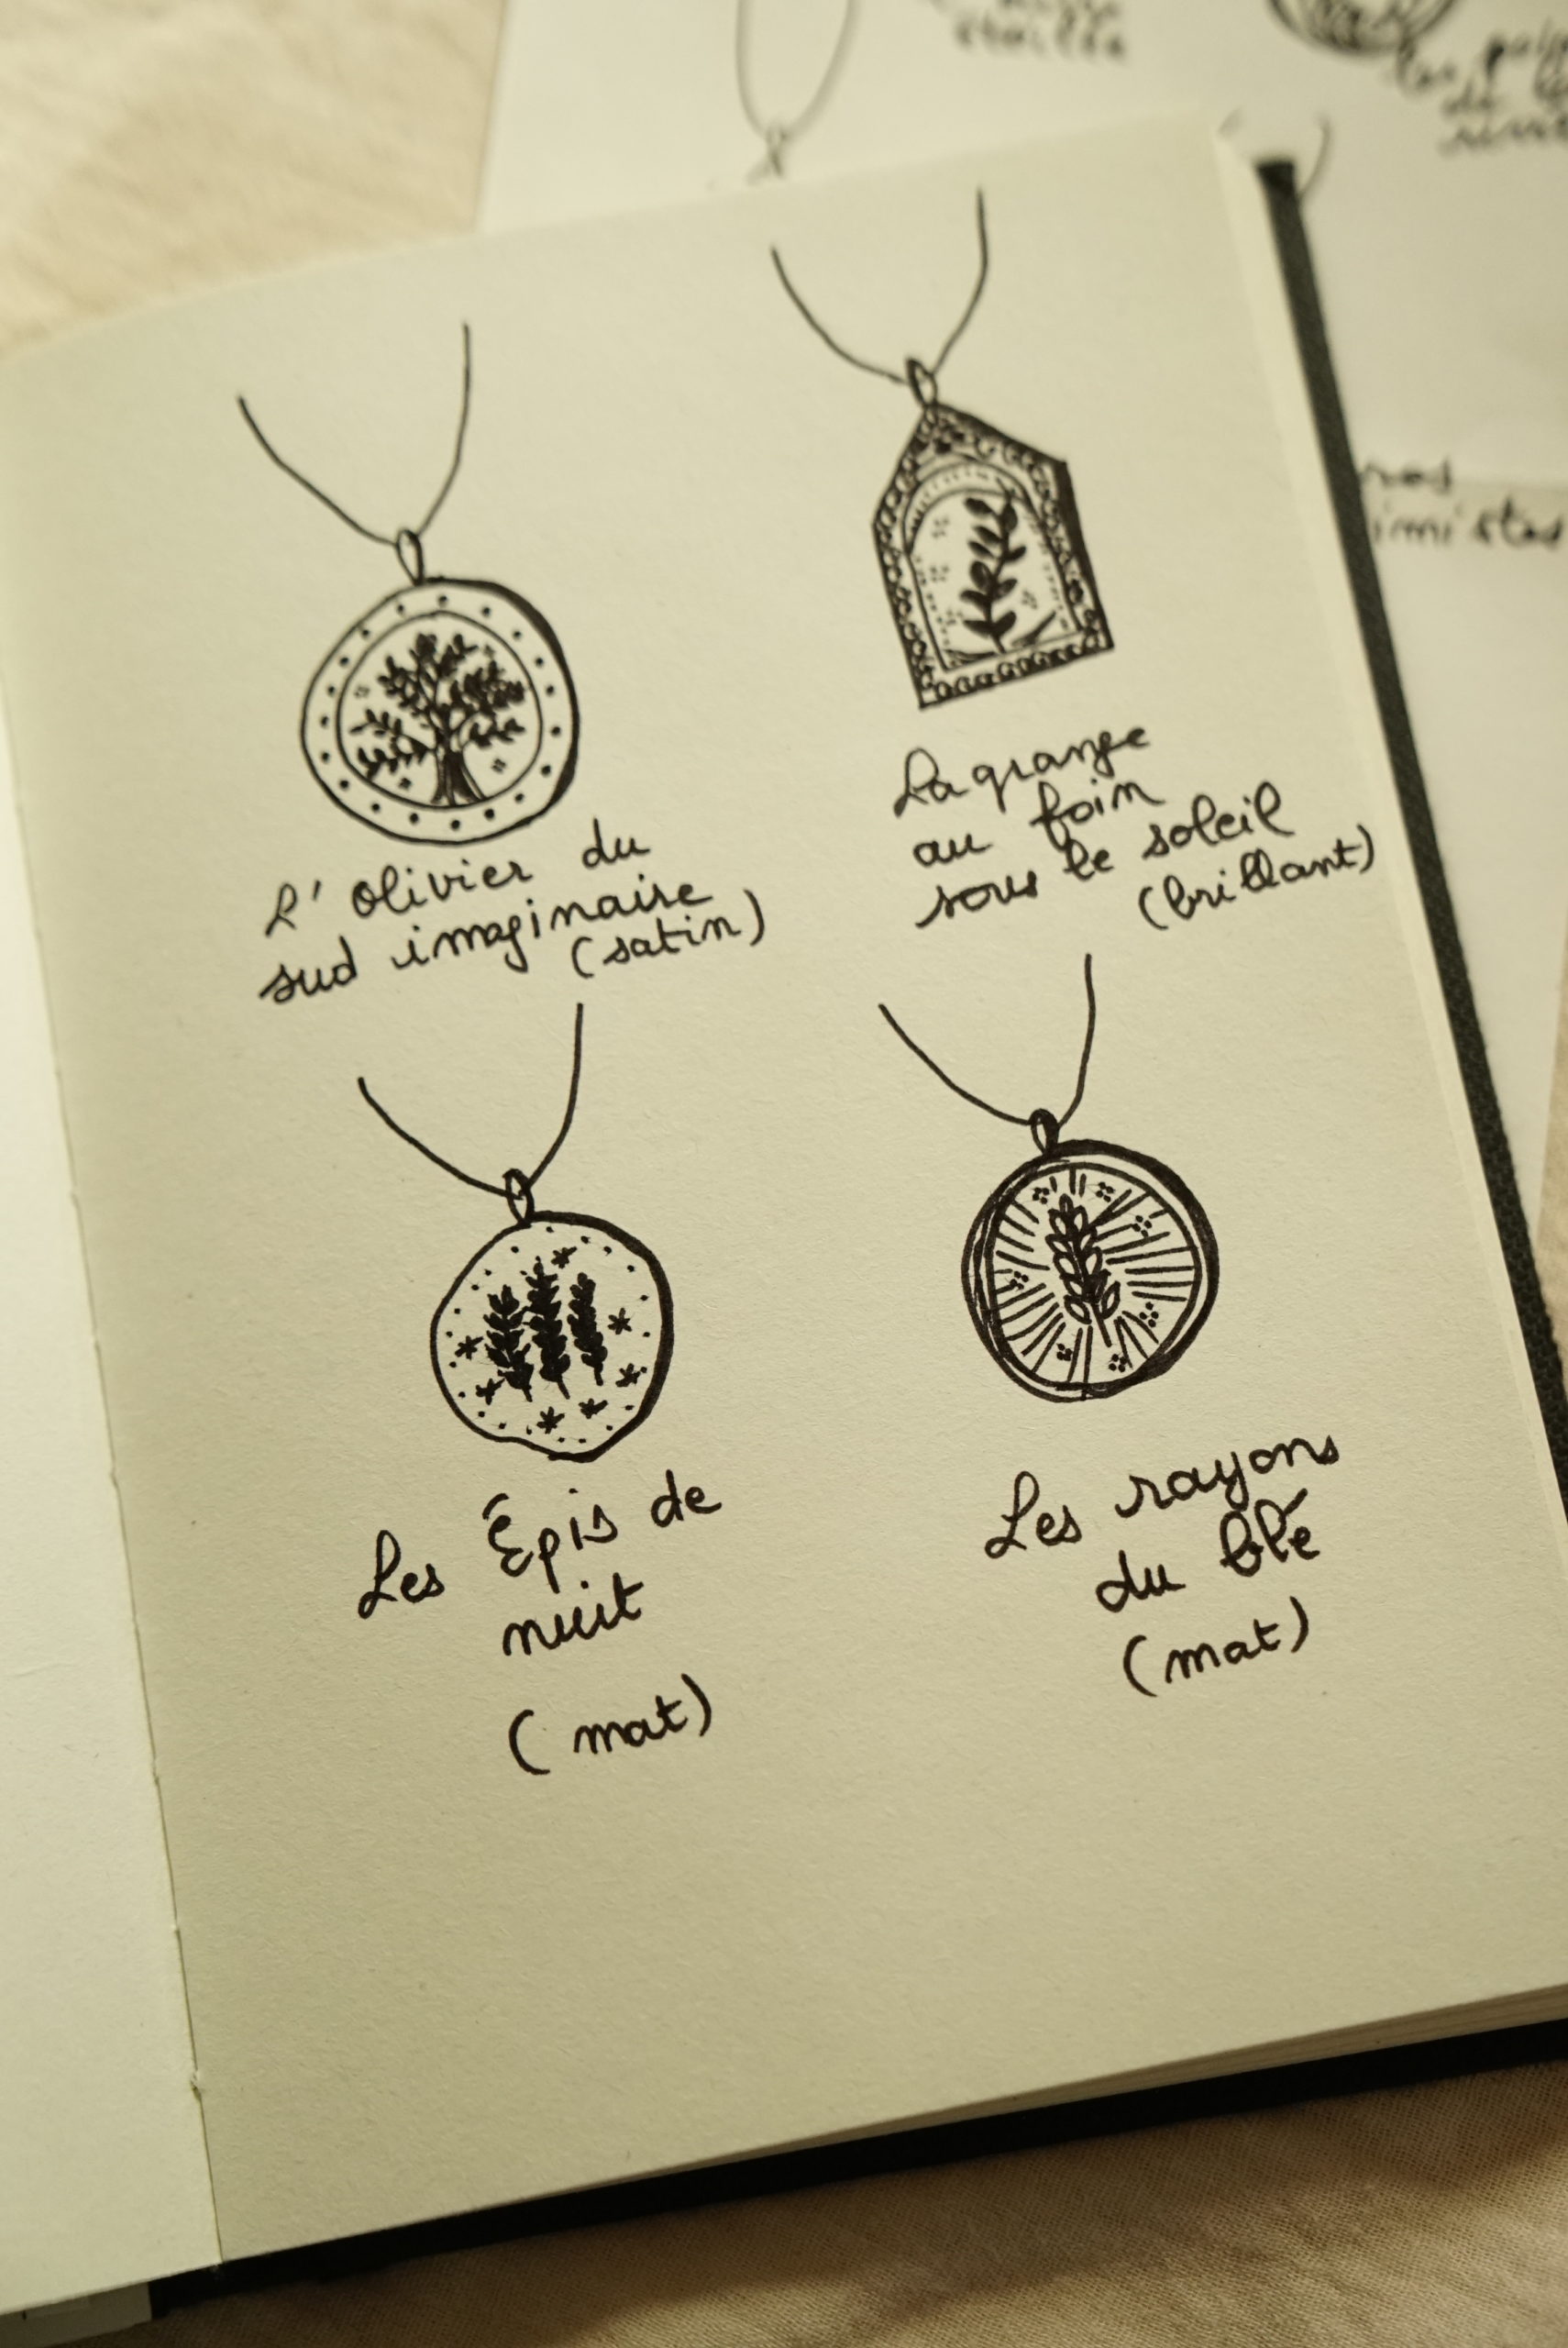 étoilée
L'olivier du
sud imaginaire
(satin)
La grange
au foin
sous le soleil
(brillant)
Les Épis de
nuit
(mat)
Les rayons
du blé
(mat)